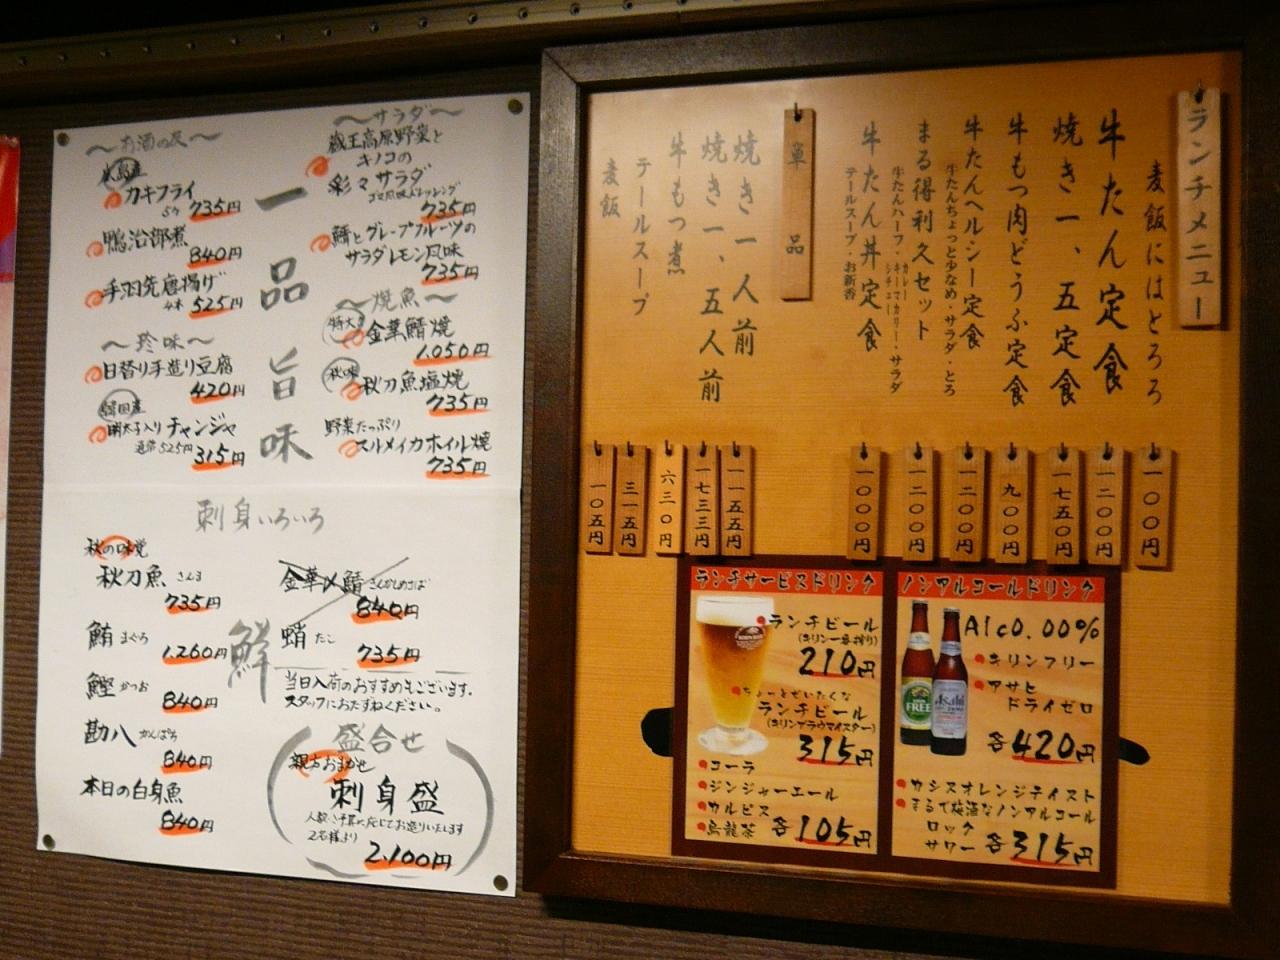 〜お酒の友〜
広島産
カキフライ
5ケ 735円
鴨治部煮
840円
手羽先唐揚げ
4本 525円
〜珍味〜
日替り手造り豆腐
420円
韓国産
明太子入りチャンジャ
通常525円 315円
一品旨味
〜サラダ〜
蔵王高原野菜と
キノコの
彩々サラダ
735円
鯖とグレープフルーツの
サラダレモン風味
735円
〜焼魚〜
特大
金華鯖焼
1.050円
秋味
秋刀魚塩焼
735円
野菜たっぷり
スルメイカホイル焼
735円
刺身いろいろ
秋の味覚
秋刀魚 さんま
735円
鮪 まぐろ
1.260円
鰹 かつお
840円
勘八 かんぱち
840円
本日の白身魚
840円
鮮
金華〆鯖 きんかしめさば
840円
蛸 たこ
735円
当日入荷のおすすめもございます。
スタッフにおたずねください。
盛合せ
親方おまかせ
刺身盛
人数、ご予算に応じてお造りいたします
2名様より
2.100円
ランチメニュー
麦飯にはとろろ
一〇〇円
牛たん定食
一二〇〇円
焼き一、五定食
一七五〇円
牛もつ肉どうふ定食
九〇〇円
牛たんヘルシー定食
牛たんちょっと少なめ・サラダ・とろ
一二〇〇円
まる得利久セット
牛たんハーフ・カレー
キーマカリー・サラダ
シチュー
一二〇〇円
牛たん丼定食
テールスープ・お新香
一〇〇〇円
単品
焼き一人前
一一五五円
焼き一、五人前
一七三三円
牛もつ煮
六三〇円
テールスープ
三一五円
麦飯
一〇五円
ランチサービスドリンク
ランチビール
(キリン一番搾り)
210円
ちょっとぜいたくな
ランチビール
(キリンブラウマイスター)
315円
コーラ
ジンジャーエール
カルピス
烏龍茶 各105円
ノンアルコールドリンク
Alc0.00%
キリンフリー
アサヒ
ドライゼロ
各420円
カシスオレンジテイスト
まるで梅酒なノンアルコール
ロック
サワー 各315円
FREE
Asahi